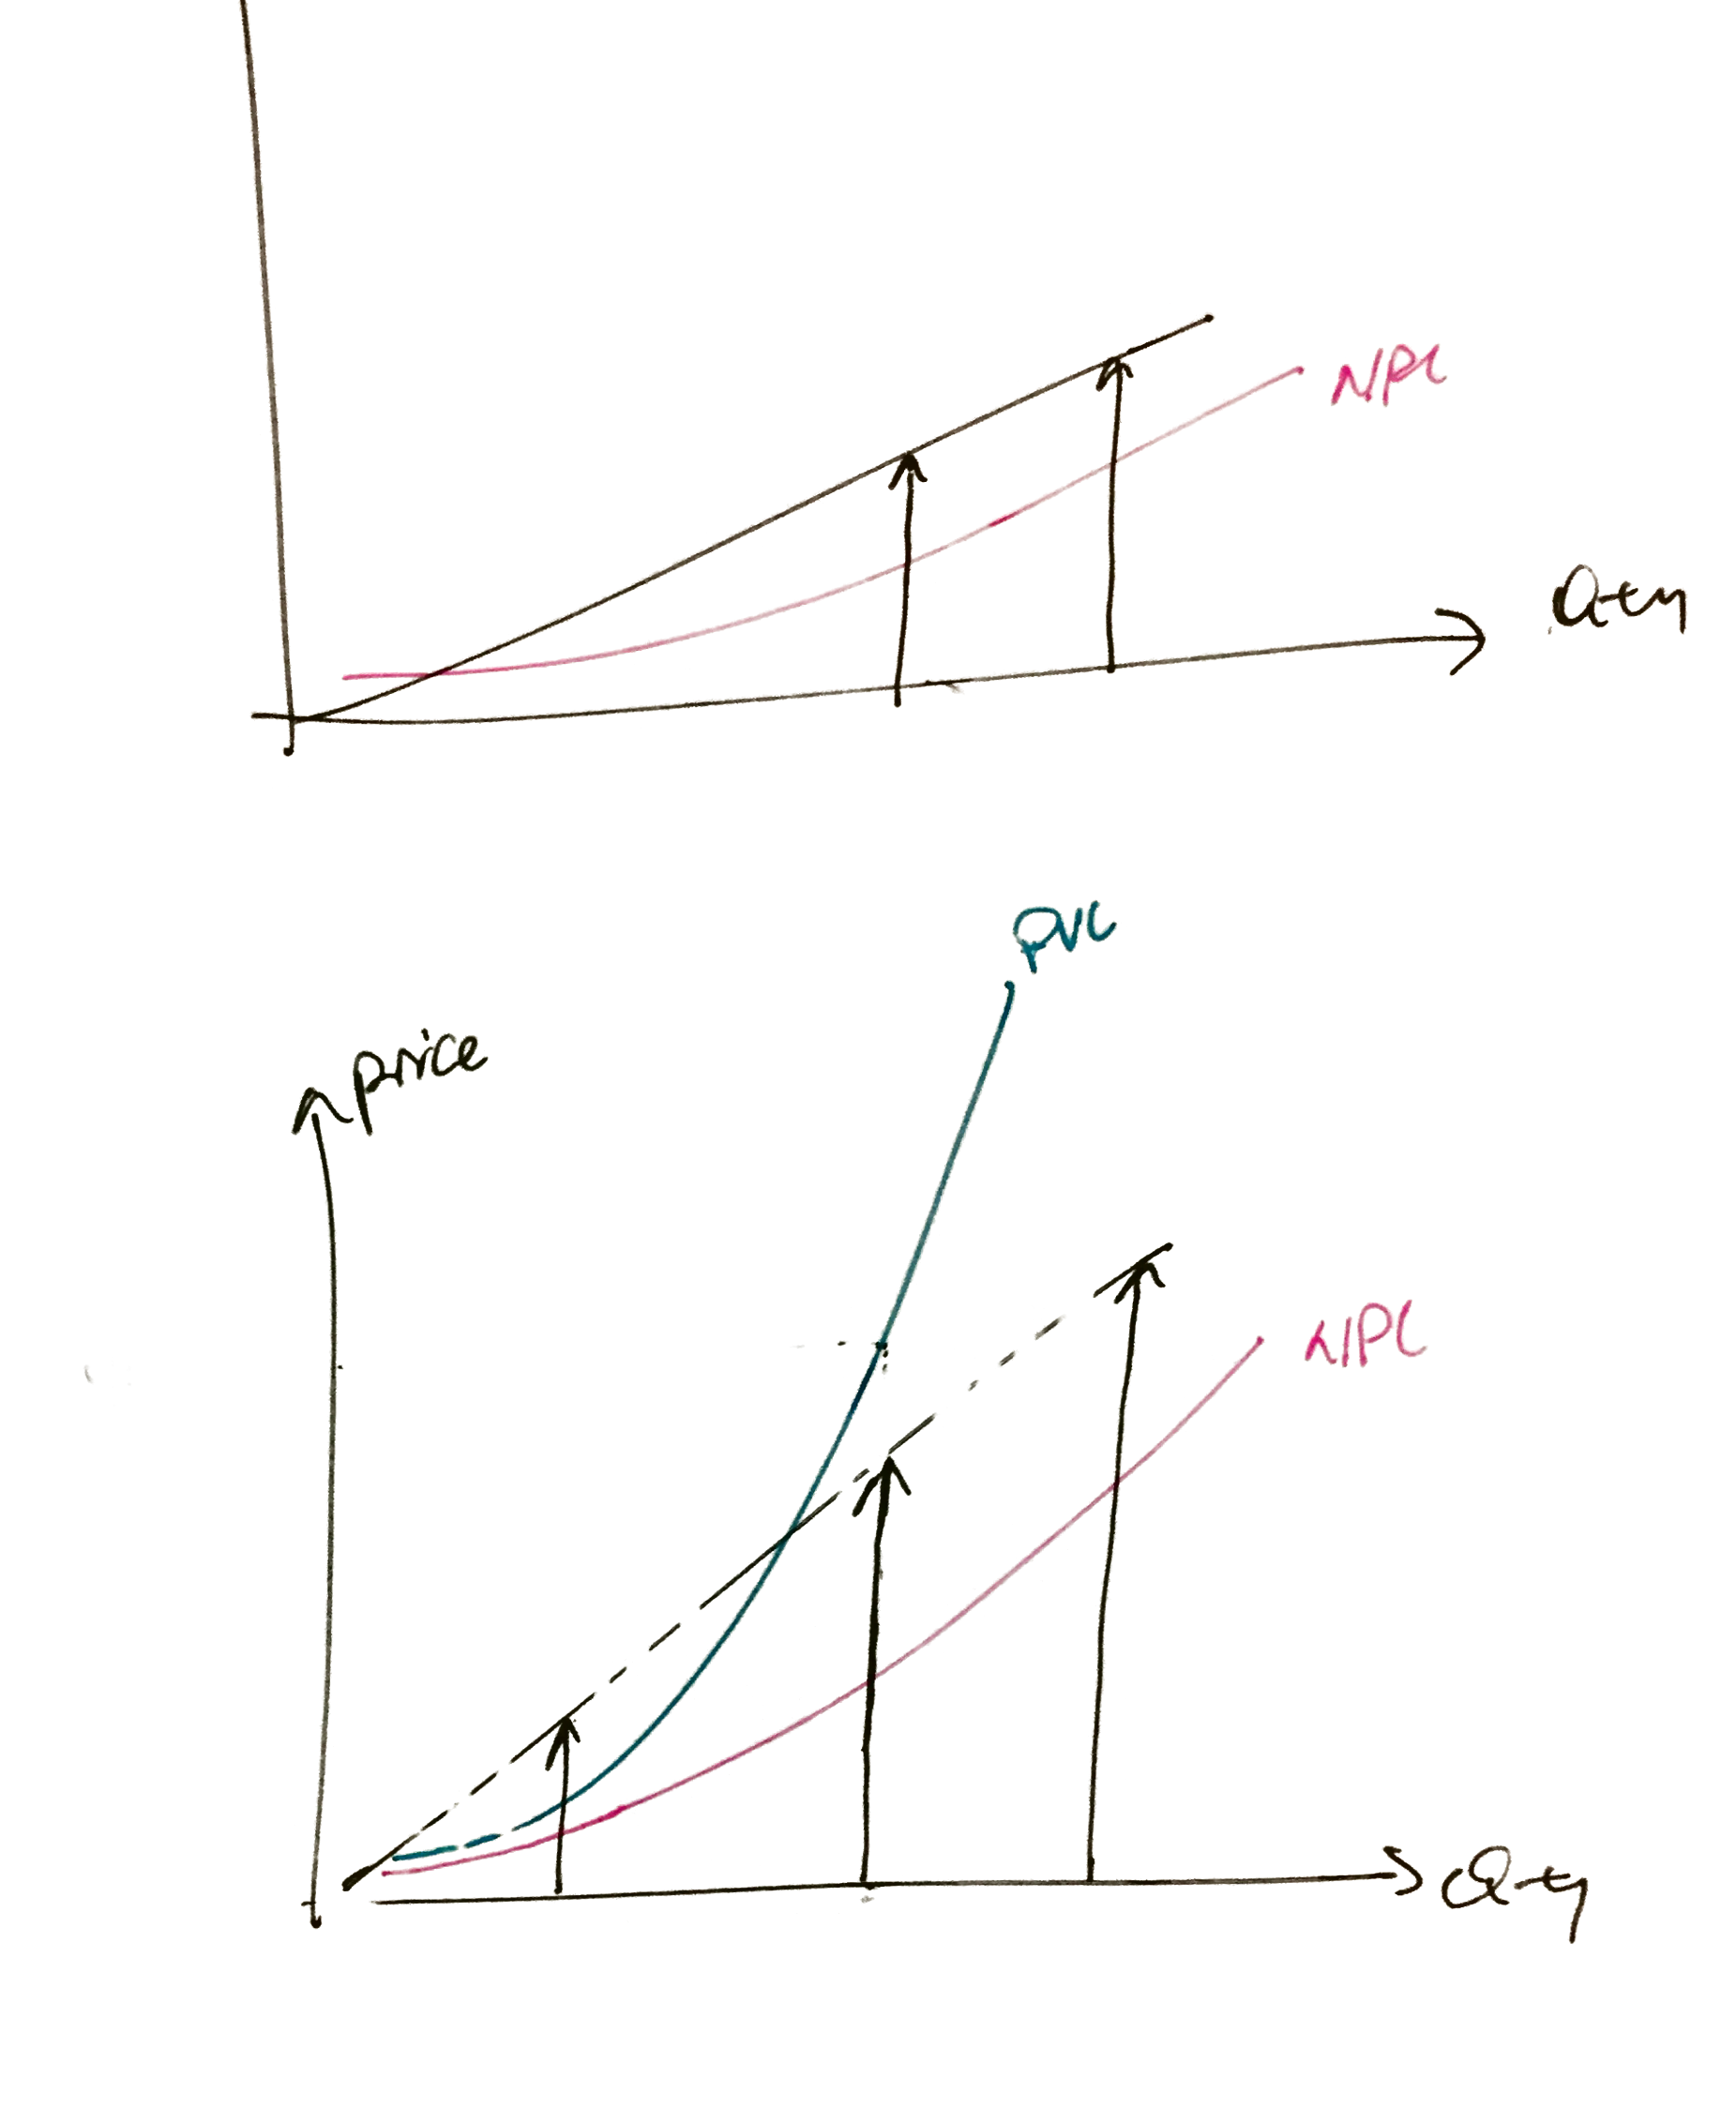 NPC
Qty
PVC
price
NPC
Qty